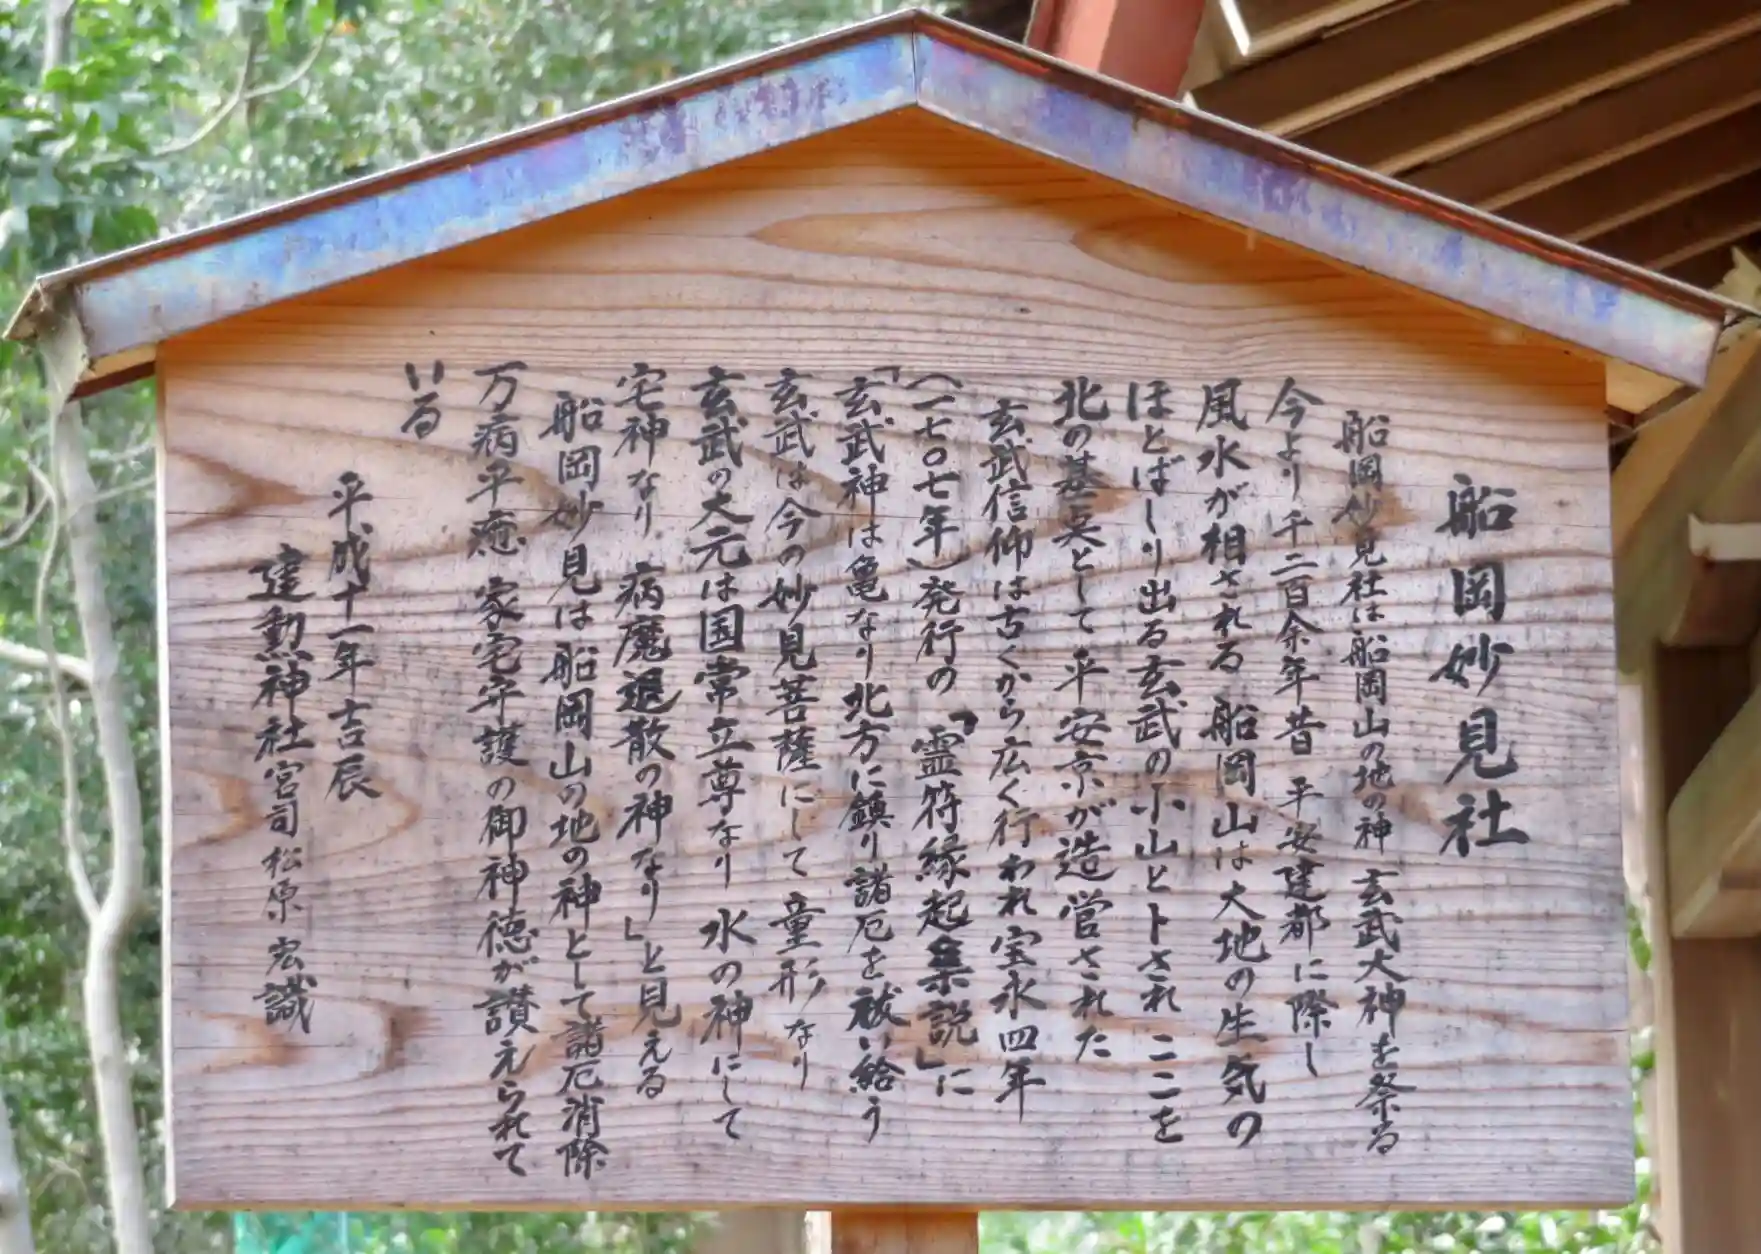 船岡妙見社
船岡妙見社は船岡山の地の神 玄武大神を祭る
今より千二百余年昔 平安建都に際し
風水が相される 船岡山は大地の生気の
ほとばしり出る玄武の小山と卜され ここを
北の基点として平安京が造営された
玄武信仰は古くから広く行われ宝永四年
(一七〇七年)発行の「霊符縁起集説」に
「玄武神は亀なり北方に鎮り諸厄を祓い給う
玄武は今の妙見菩薩にして 童形なり
玄武の大元は国常立尊なり 水の神にして
宅神なり 病魔退散の神なり」と見える
船岡妙見は船岡山の地の神として諸厄消除
万病平癒 家宅守護の御神徳が讃えられて
いる
平成十一年吉辰
建勲神社宮司 松原 宏識